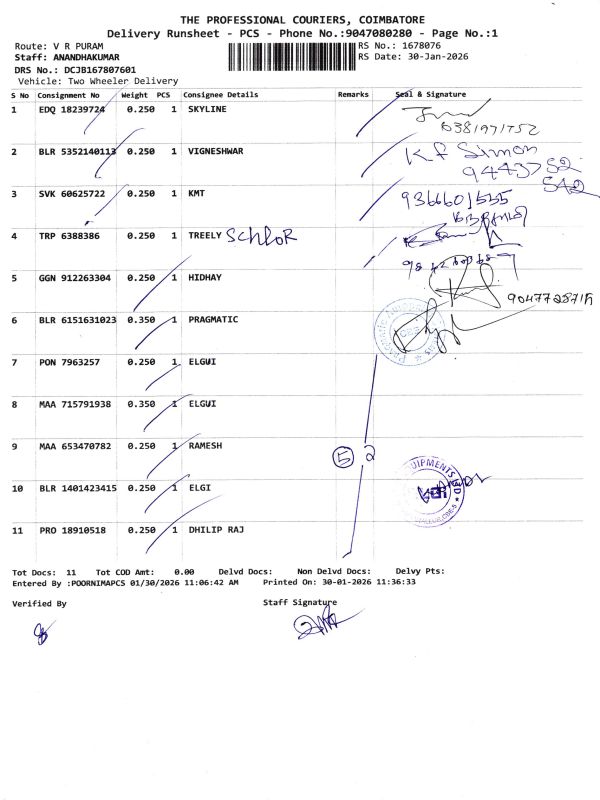 THE PROFESSIONAL COURIERS, COIMBATORE
Delivery Runsheet - PCS - Phone No.:9047080280 - Page No.:1
Route: V R PURAM RS No.: 1678076
Staff: ANANDHAKUMAR RS Date: 30-Jan-2026
DRS No.: DCJB167807601
Vehicle: Two Wheeler Delivery
S No Consignment No Weight PCS Consignee Details Remarks Seal & Signature
1 EDQ 18239724 0.250 1 SKYLINE
6381971752
2 BLR 5352140113 0.250 1 VIGNESHWAR K f Simon
94437 52
542
3 SVK 60625722 0.250 1 KMT 9366601535
4 TRP 6388386 0.250 1 TREELY SCHLOR
5 GGN 912263304 0.250 1 HIDHAY
6 BLR 6151631023 0.350 1 PRAGMATIC
7 PON 7963257 0.250 1 ELGUI
8 MAA 715791938 0.350 1 ELGUI
9 MAA 653470782 0.250 1 RAMESH 5 2
10 BLR 1401423415 0.250 1 ELGI
11 PRO 18910518 0.250 1 DHILIP RAJ
Tot Docs: 11 Tot COD Amt: 0.00 Delvd Docs: Non Delvd Docs: Delvy Pts:
Entered By :POORNIMAPCS 01/30/2026 11:06:42 AM Printed On: 30-01-2026 11:36:33
Verified By Staff Signature